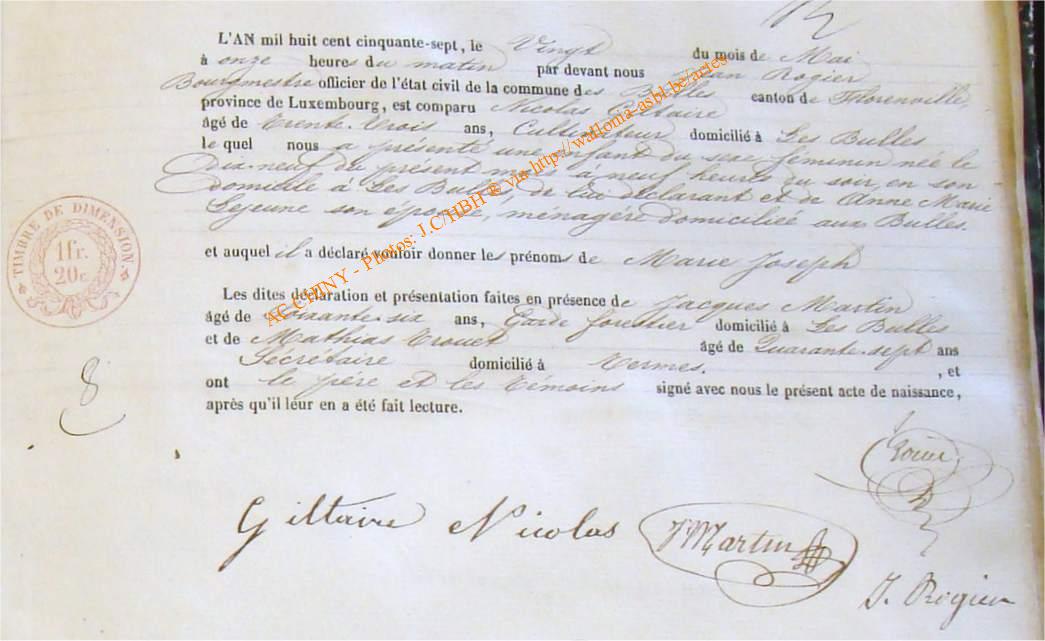 L'AN mil huit cent cinquante-sept, le Vingt du mois de Mai
à onze heures du matin par devant nous Jean Rogier
Bourgmestre officier de l'état civil de la commune des Bulles canton de Florenville
province de Luxembourg, est comparu Nicolas Giltaire
âgé de trente-trois ans, Cultivateur domicilié à Les Bulles
le quel nous a présenté une enfant du sexe féminin née le
Dix-neuf du présent mois à neuf heures du soir, en son
domicile à Les Bulles de lui déclarant et de Anne Marie
Lejeune son épouse, ménagère domiciliée aux Bulles.
et auquel il a déclaré vouloir donner les prénoms de Marie Joseph
Les dites déclaration et présentation faites en présence de Jacques Martin
âgé de quarante-six ans, Garde forestier domicilié à Les Bulles
et de Mathias âgé de Quarante-sept ans
Secrétaire domicilié à Termes. , et
ont le père et les témoins signé avec nous le présent acte de naissance,
après qu'il leur en a été fait lecture.
TIMBRE DE DIMENSION
1fr.
20c.
8
Giltaire Nicolas JMartin
J. Rogier
AC CHINY - Photos: J.C/HBH ® via http://wallonia-asbl.be/actes